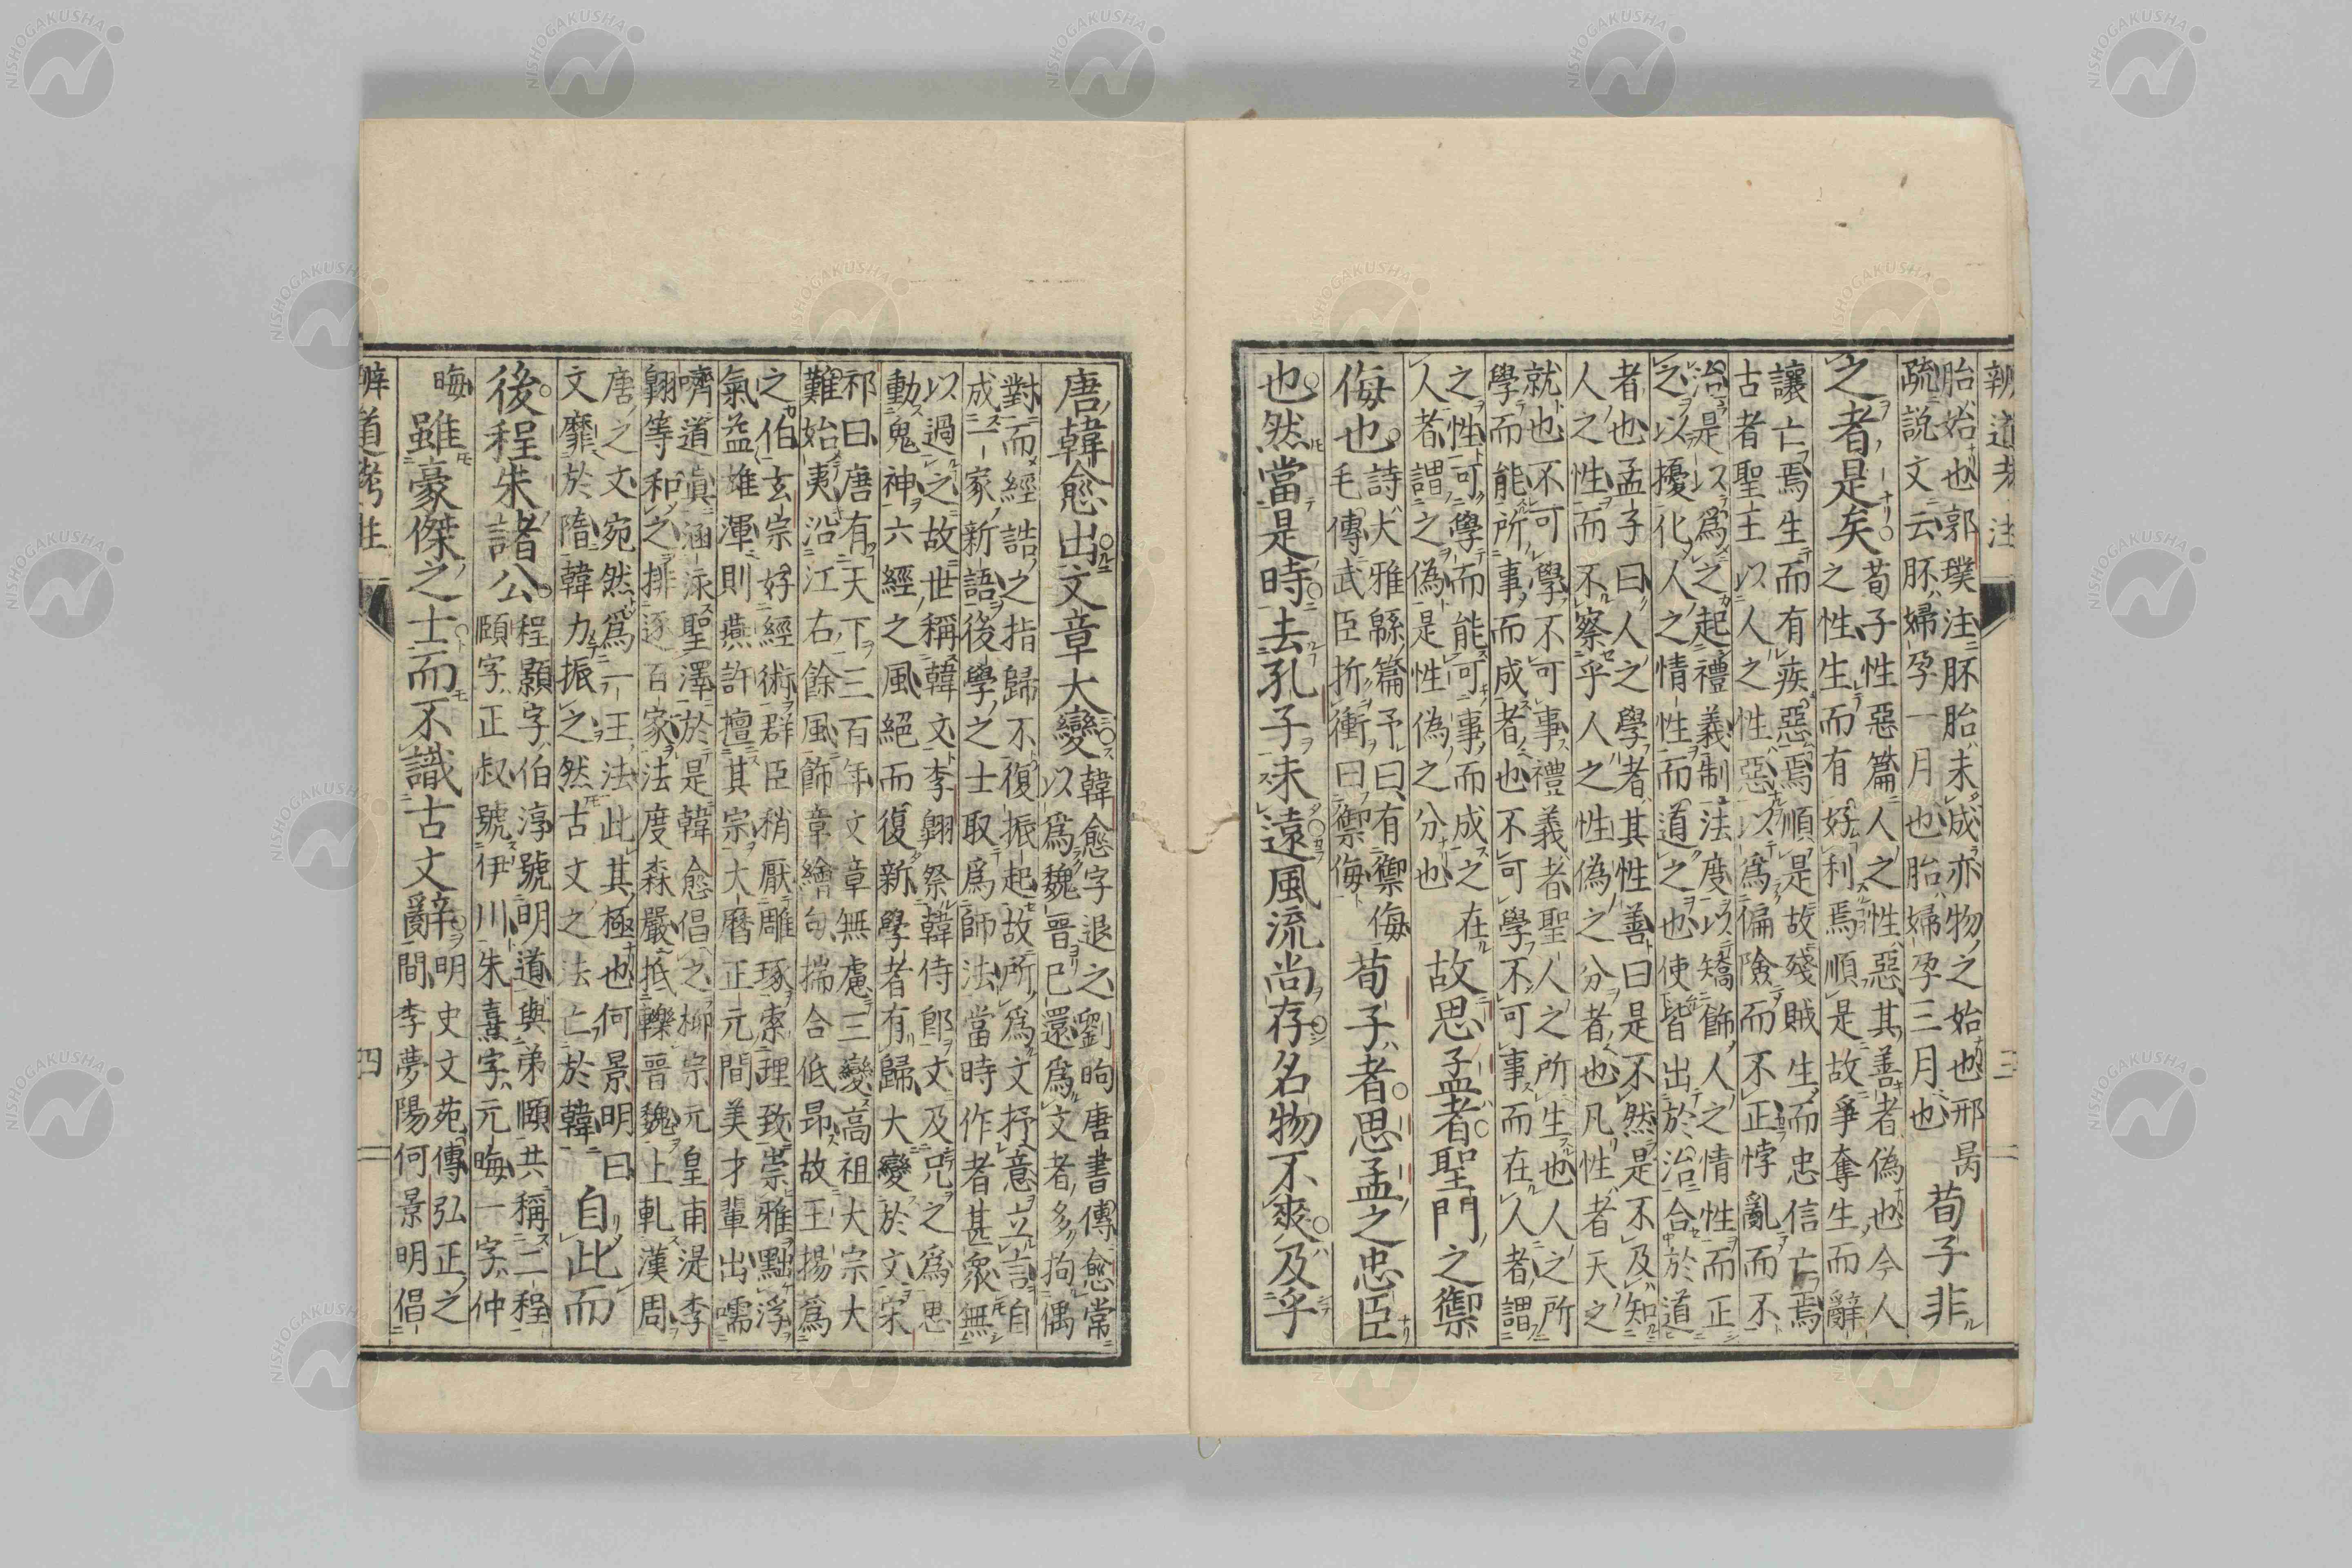 辨道考注
三
胎始也郭璞注胚胎未成亦物之始也邢昺
疏說文云胚婦孕一月也胎婦孕三月也
荀子非
之者是矣
荀子性惡篇人之性惡其善者偽也今人
之性生而有好利焉順是故爭奪生而辭
讓亡焉生而有疾惡焉順是故殘賊生而忠信亡焉
古者聖王以人之性惡以爲偏險而不正悖亂而不
治是以爲之起禮義制法度以矯飾人之情性而正
之以擾化人之情性而道之也使皆出於治合於道
者也孟子曰人之學者其性善曰是不然是不及知
人之性而不察乎人之性偽之分者也凡性者天之
就也不可學不可事禮義者聖人之所生也人之所
學而能所事而成者也不可學不可事而在人者謂
之性可學而能可事而成之在
人者謂之偽是性偽之分也
故思孟者聖門之禦
侮也
詩大雅緜篇予曰有禦侮
毛傳武臣折衝曰禦侮
荀子者思孟之忠臣
也然當是時去孔子未遠風流尚存名物不爽及乎
唐韓愈出文章大變
韓愈字退之劉昫唐書傳愈常
以爲魏晉已還爲文者多拘偶
對而經誥之指歸不復振起故所爲文抒意立言自
成一家新語後學之士取爲師法當時作者甚衆無
以過之故世稱韓文李翺祭韓侍郎文及兄之爲思
動鬼神六經之風絕而復新學者有歸大變於文宋
祁曰唐有天下三百年文章無慮三變高祖大宗大
難始夷沿江右餘風飾章繪句揣合低昂故王揚爲
之伯玄宗好經術群臣稍厭雕琢索理致崇雅黜浮
氣益雄渾則燕許擅其宗大曆正元間美才輩出嚅
嚌道眞涵泳聖澤於是韓愈倡之柳宗元皇甫湜李
翺等和之排逐百家法度森嚴抵轢晉魏上軋漢周
唐之文宛然爲一王法此其極也何景明曰
文靡於隋韓力振之然古文之法亡於韓
自此而
後程朱諸公
程顥字伯淳號明道與弟頤共稱二程
頤字正叔號伊川朱熹字元晦一字仲
晦
雖豪傑之士而不識古文辭
明史文苑傳弘正之
間李夢陽何景明倡
辨道考注
四